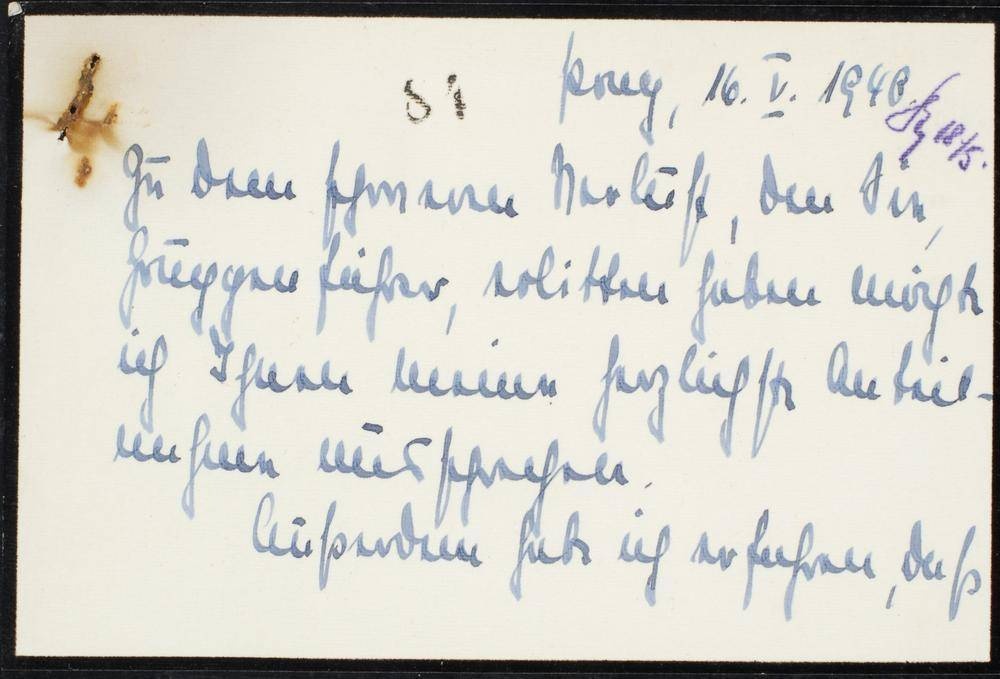 Prag, 16. V. 1940.
81
18/5.
Zu dem schweren Verlust, den Sie,
Gruppenführer, erlitten haben möchte
ich Ihnen meine herzlichste Anteil-
nahme aussprechen.
Außerdem habe ich erfahren, daß